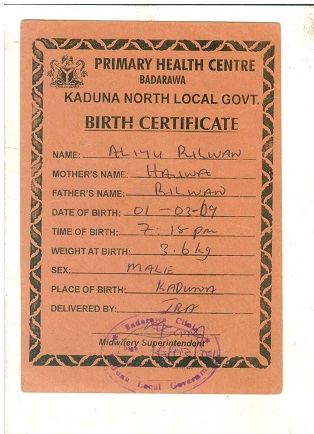 PRIMARY HEALTH CENTRE
BADARAWA
KADUNA NORTH LOCAL GOVT.
BIRTH CERTIFICATE
NAME: ALIYU RILWAN
MOTHER'S NAME: HAUWA
FATHER'S NAME: RILWAN
DATE OF BIRTH: 01-03-09
TIME OF BIRTH: 7:15 pm
WEIGHT AT BIRTH: 3.6kg
SEX: MALE
PLACE OF BIRTH: KADUNA
DELIVERED BY:
Badarawa Clinic
Midwifery Superintendent
Local Government